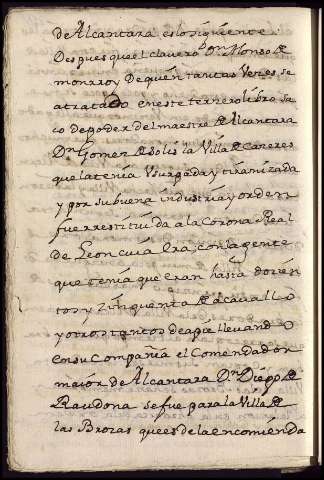 de Alcantara es lo siguiente.
Despues que el clavero Dn. Alonso de
monrroy de quén tantas Vezes se
a tratado en este terzero libro sa
co depoder del maestre de Alcantara
Dn. Gomez de Solis la Villa de Cazeres
que la tenia Vsurpada y tiranizada
y por su buena industria y orden
fue rrestituida a la Corona Real
de Leon cuia era con la gente
que tenia que eran hasta dozien
tos y zinquenta de acauallo
y otros tantos de apie lleuando
en su Compañia el Comendador
maior de Alcantara Dn. Diego de
Raudona se fue para la Villa de
las Brozas que es de la encomienda